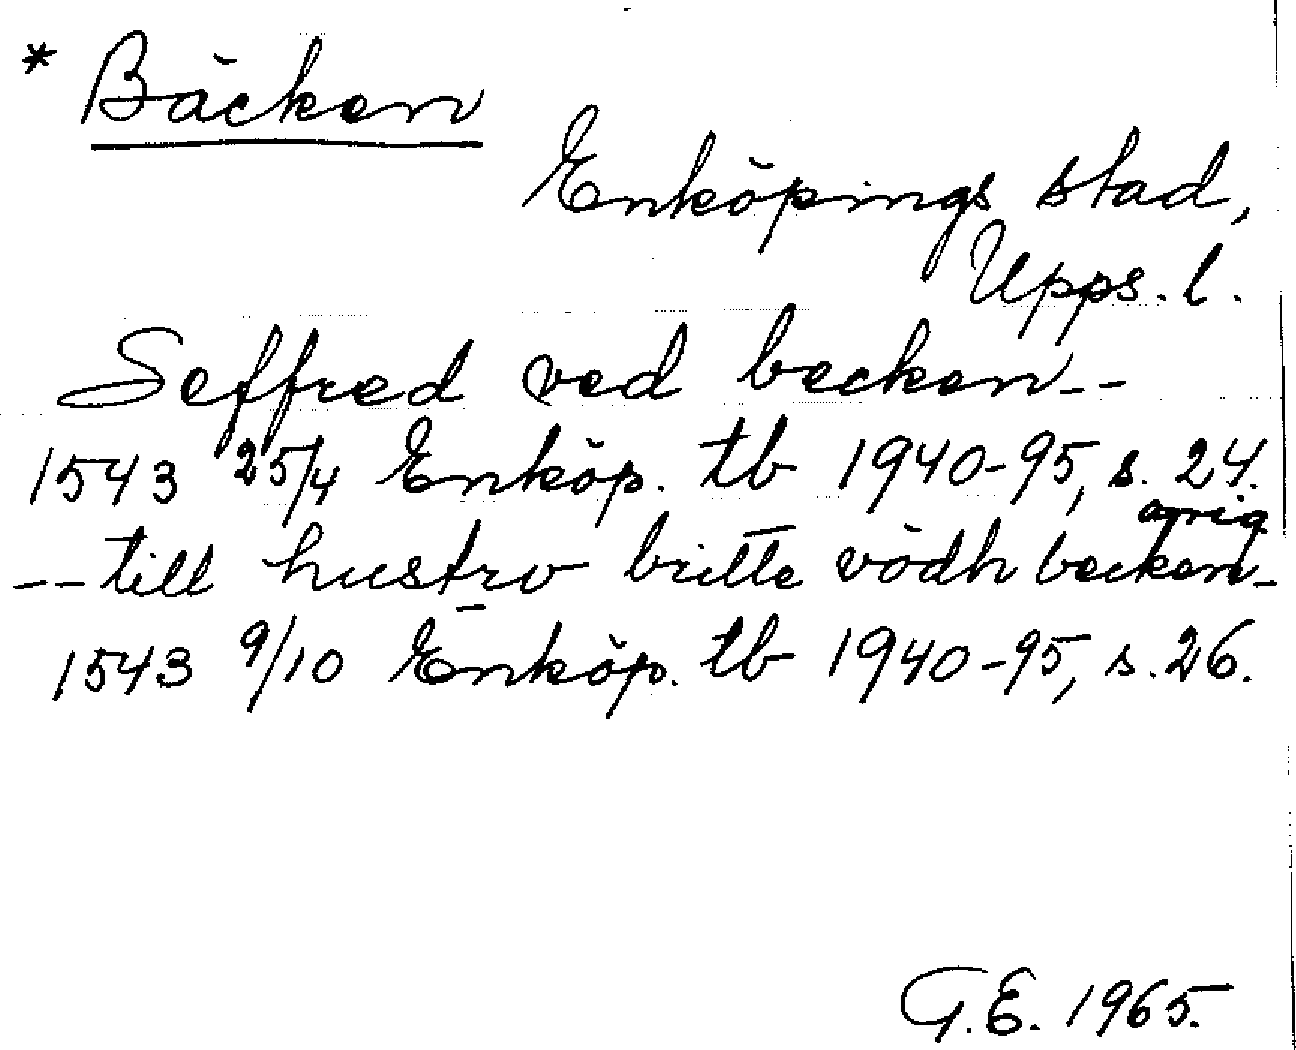 * Bäcken
Enköpings stad,
Upps. l.
Seffred ved becken--
1543 25/4 Enköp. tb 1940-95, s. 24.
orig.
--till hustrv britte vödh becken-
1543 9/10 Enköp. tb 1940-95, s. 26.
G.E. 1965.